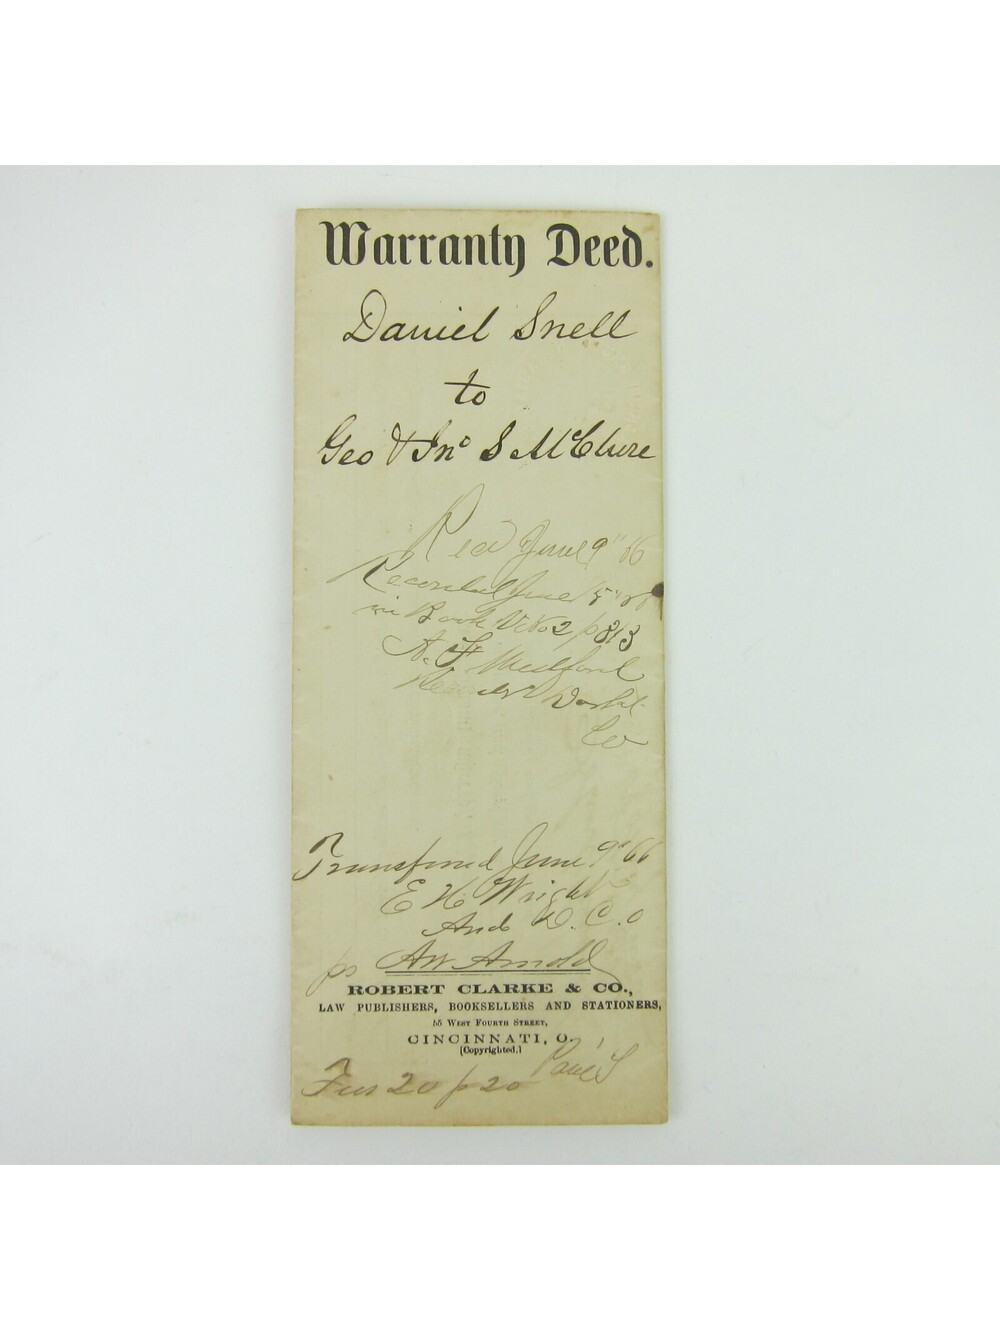 Warranty Deed.
Daniel Snell
to
Geo & Jno S McClure
Recd June 9" 66
Recorded June 15" 66
in Book V No 2 p 313
A. F Medford
Recorder Darke
Co
Transfered June 9" 66
E H Wright
Aud D. C. O
pr AW Arnold
ROBERT CLARKE & CO.,
LAW PUBLISHERS, BOOKSELLERS AND STATIONERS,
55 WEST FOURTH STREET,
CINCINNATI, O.
[Copyrighted.]
Fees 20 p 20